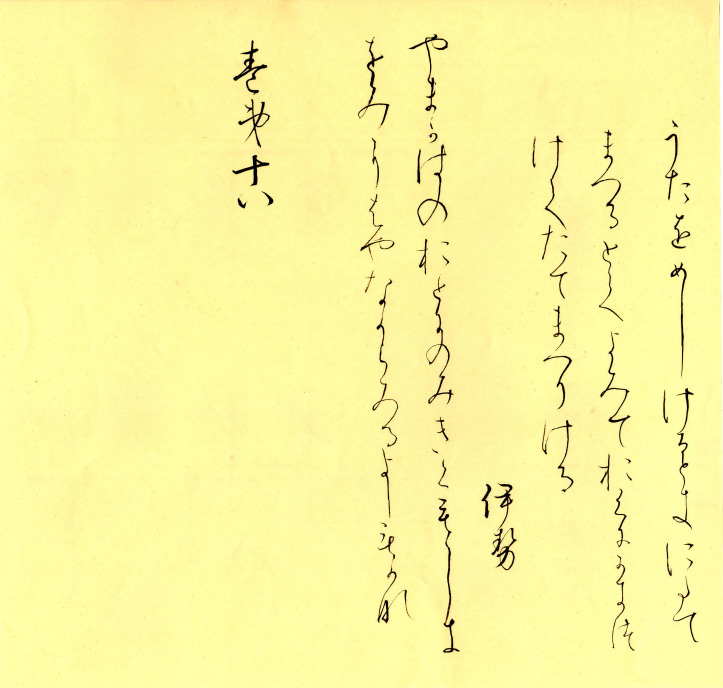 うたをめしけるときにたて
まつるとてよみておくにかきつ
けてたてまつりける
伊勢
やまかはのおとにのみきくもゝしき
をみをはやなからみるよしもかな
巻第十八